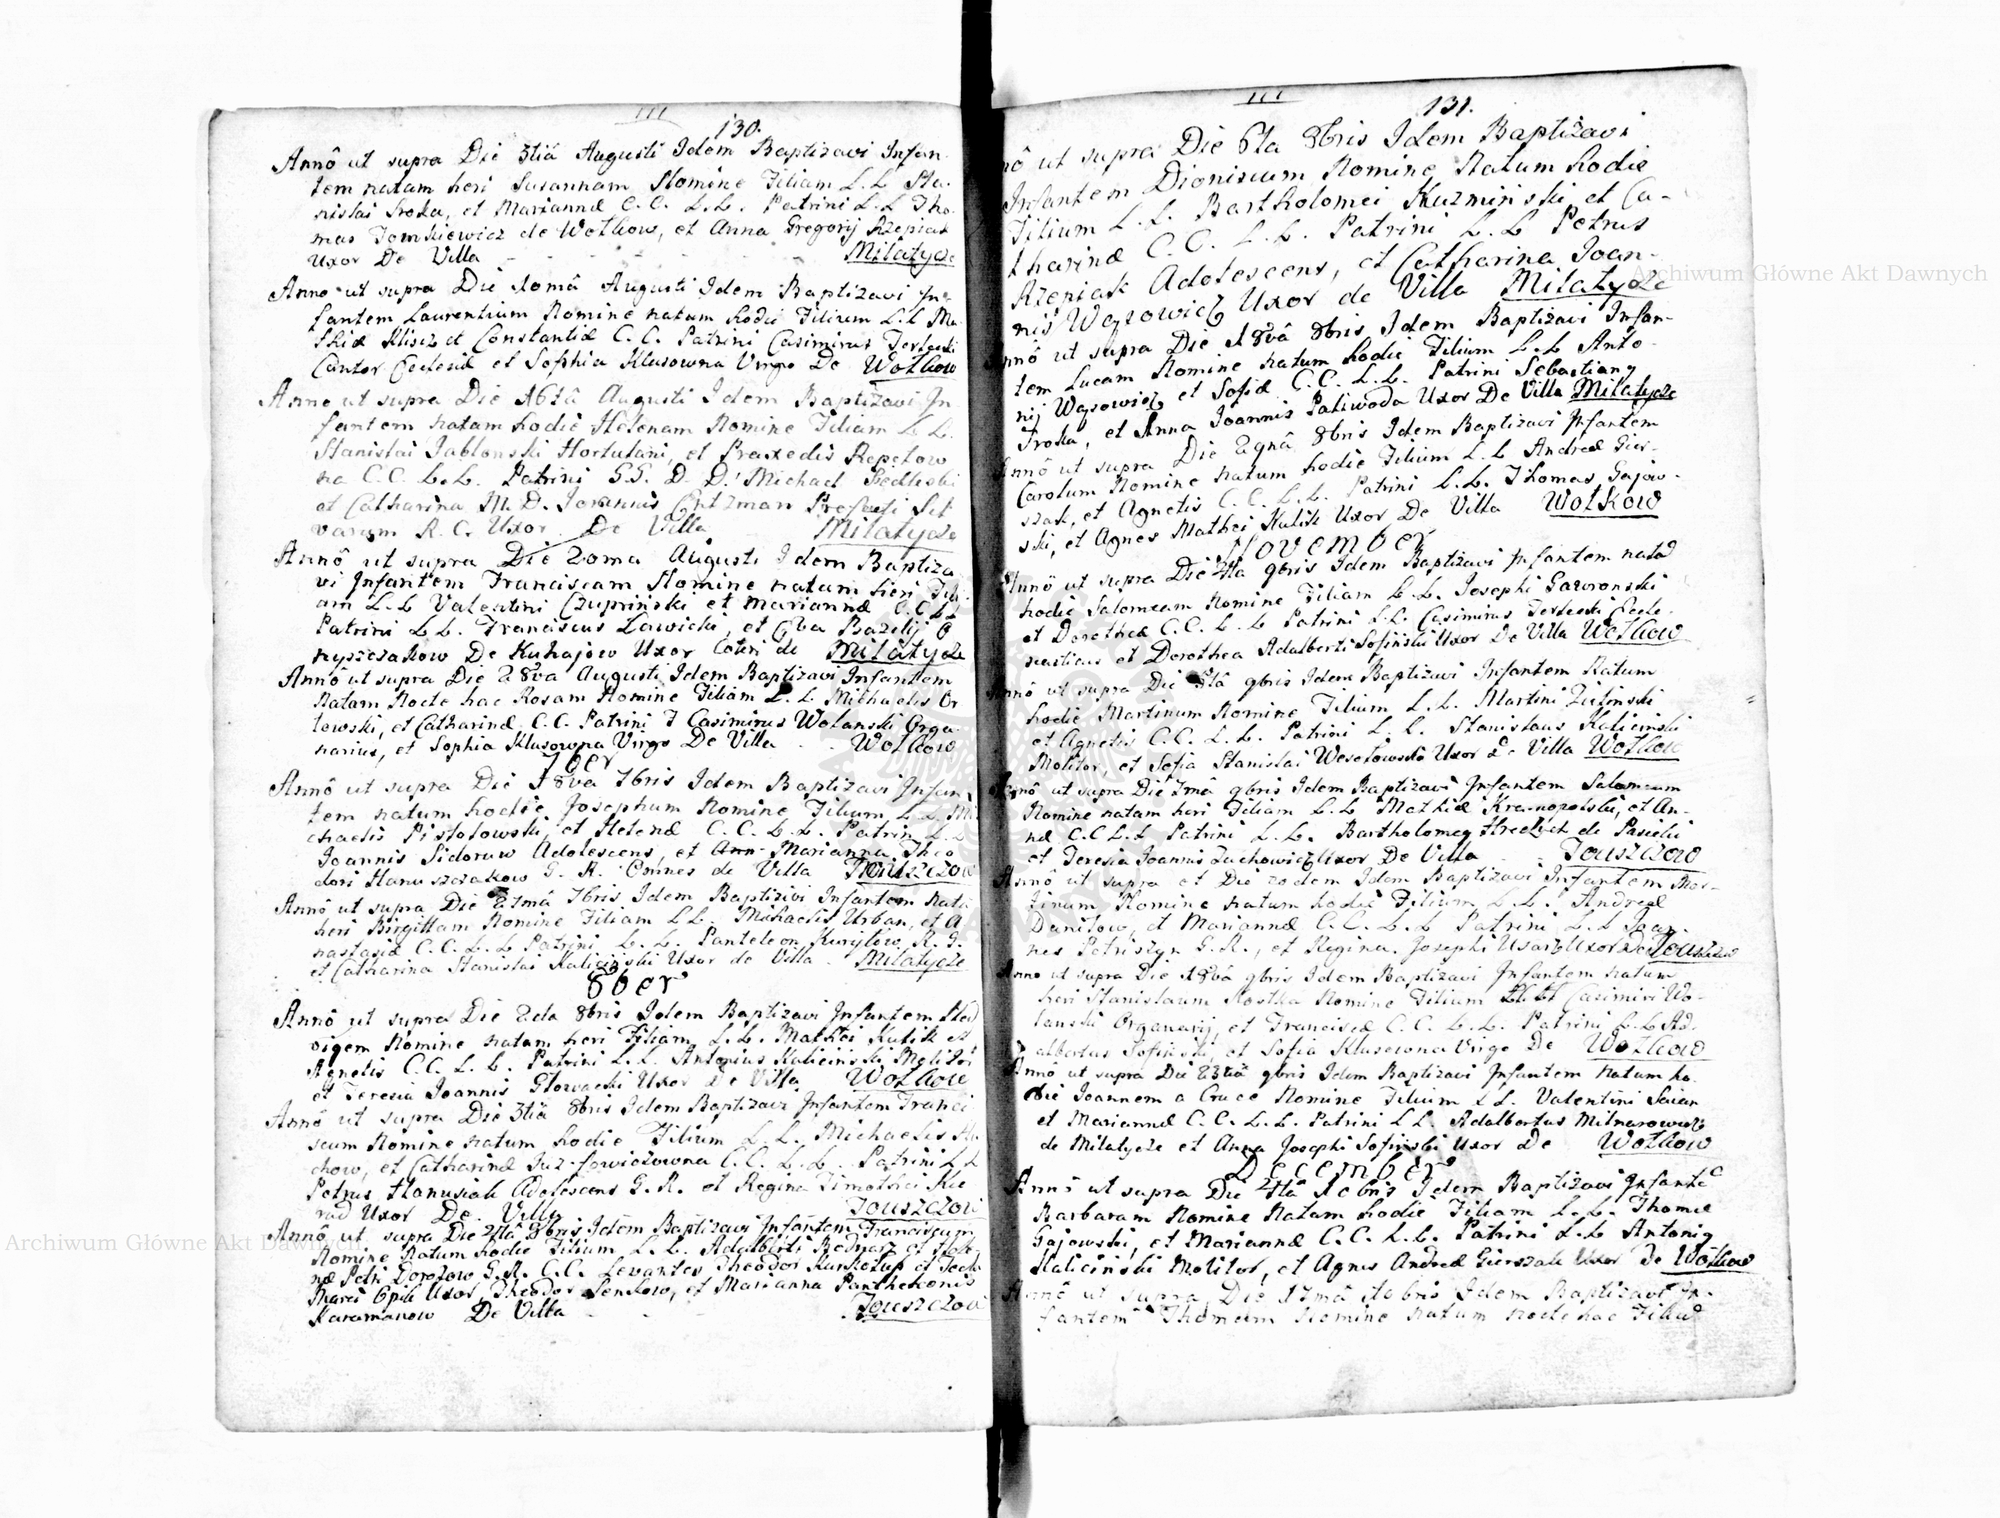 130.
Annô ut supra Die 3tiâ Augusti Idem Baptizavi Infan-
tem natam heri Susannam Nomine Filiam L.L Sta-
nislai Sroka, et Mariannæ C.C. L.L. Patrini L.L Tho-
mas Tomkiewicz de Wołkow, et Anna Gregorij Rzepiak
Uxor De Villa Milatycze
Anno ut supra Die Augusti Idem Baptizavi In-
fantem Laurentium Nomine natum hodie Filium L.L Ma-
thiæ Klisz et Constantiæ C.C. Patrini Casimirus Terlecki
Cantor Ecclesiæ et Sophia Klusowna Virgo De Wołkow
Anno ut supra Die 16tâ Augusti Idem Baptizavi In-
fantem natam hodie Helenam Nomine Filiam L.L.
Stanislai Jablonski Hortulani, et Praxedis Repetow
na C.C. L.L. Patrini G.G. D.D. Michael Siedleski
et Catharina M.D. Joannis Prefecti Sil
varum R.C. Uxor De Villa Milatycze
Annô ut supra Die 20ma Augusti Idem Baptiza
vi Infantem Franciscam Nomine natam heri Fili-
am L.L Valentini Czupriński et Mariannæ C.C L.L
Patrini L.L. Franciscus Lawicki, et Eva Bazilij O
nyszczakow De Kuhajow Uxor Coteri de Milatycze
Annô ut supra Die 28va Augusti Idem Baptizavi Infantem
Natam Nocte hac Rosam Nomine Filiam L.L. Michaelis Or
lowski, et Catharinæ C.C. Patrini Casimirus Wolanski Orga-
narius, et Sophia Klusowna Virgo De Villa Wołkow
7ber
Annô ut supra Die 18va 7bris Idem Baptizavi Infan
tem natum hodie Josephum Nomine Filium L.L. Mi
chaelis Pistolowski, et Helenæ C.C. L.L. Patrin L.L
Joannis Sidorow Adolescens, et Ann Marianna Theo
dori Hanuszczakow G.R. Omnes de Villa Touszczow
Annô ut supra Die 21mâ 7bris Idem Baptizavi Infantem nata
heri Birgittam Nomine Filiam L.L. Michaelis Urban, et A
nastasiæ C.C. L.L Patrini L.L. Panteleon Kuryłow, R.G.
et Catharina Stanislai Kaliciński Uxor de Villa Milatycze
8ber
Annô ut supra Die 2da 8bris Idem Baptizavi Infantem Hed
vigem Nomine natam heri Filiam L.L. Mathei Kulik et
Agnetis C.C. L.L. Patrini L.L. Antonius Kaliciński Molitor
et Teresia Joannis Głowacki Uxor De Villa Wołkow
Annô ut supra Die 3tiâ 8bris Idem Baptizavi Infantem Franci
scum Nomine natum hodie Filium L.L. Michaelis
chow, et Catharinæ C.C. L.L. Patrini L.L
Petrus Hanusiak Adolescens G.R. et Regina Timothei Kie
rad Uxor De Villa Touszczow
Annô ut supra Die 4tâ 8bris Idem Baptizavi Infantem Franciscum
Nomine Natum hodie Filium L.L. Adalberti Bednarz et Hele-
næ Petri Dorotow G.R. C.C. Levantes Theodor et
Marci Uxor, Theodor Senkow, et Marianna Pantheleonis
Karamanow De Villa Touszczow
131.
nô ut supra Die 6ta 8bris Idem Baptizavi
Infantem Dionisium Nomine Natum hodie
Filium L.L. Bartholomei Kuzmiński et Ca-
tharinæ C.C. L.L. Patrini L.L Petrus
Rzeniak Adolescens, et Catharina Joan-
nis Wąsowicz Uxor de Villa Milatycze
Annô ut supra Die 18vâ 8bris Idem Baptizavi Infan-
tem Lucam Nomine natum hodie Filium L.L Anto-
nij Wąsowicz et Sofiæ C.C. L.L. Patrini Sebastiany
Sroka, et Anna Joannis Paliwoda Uxor De Villa Milatycze
Annô ut supra Die 8bris Idem Baptizavi Infantem
Carolum Nomine natum hodie Filium L.L Andreæ Gier-
szak, et Agnetis C.C. L.L. Patrini L.L. Thomas Gajow-
ski, et Agnes Mathei Kulik Uxor De Villa Wołkow
November
Annô ut supra Die 4ta 9bris Idem Baptizavi Infantem natā
hodie Salomeam Nomine Filiam L.L. Josephi Gaworonski
et Dorotheæ C.C. L.L Patrini L.L. Casimirus Terlecki Eccle-
siasticus et Dorothea Adalberti Sofinski Uxor De Villa Wołkow
Annô ut supra Die 9bris Idem Baptizavi Infantem Natum
hodie Martinum Nomine Filium L.L. Martini Zielinski
et Agnetis C.C. L.L. Patrini L.L. Stanislaus Kaliciński
Molitor, et Sofia Stanislai Wesołowski Uxor De Villa Wołkow
Annô ut supra Die 7mâ 9bris Idem Baptizavi Infantem Salomeam
Nomine natam heri Filiam L.L Mathiæ Krasnopolski, et An-
næ C.C L.L Patrini L.L. Bartholomey de Pasieki
et Teresia Joannis Zuchowicz Uxor De Villa Touszczow
Annô ut supra et Die eodem Idem Baptizavi Infantem Mar-
tinum Nomine natum hodie Filium L.L. Andreæ
Danilow, et Mariannæ C.C. L.L Patrini L.L Joan-
nes Petriszyn G.R., et Regina Josephi Usarz Uxor De Touszczow
Anno ut supra Die 18vâ 9bris Idem Baptizavi Infantem natum
heri Stanislaum Kostka Nomine Filium Casimiri Wo-
lanski Organarij, et Franciscæ C.C. L.L. Patrini L.L Ad-
albertus Sofinski, et Sofia Klusowna Virgo De Wołkow
Annô ut supra Die 23tiâ 9bris Idem Baptizavi Infantem natum ho-
die Joannem a Cruce Nomine Filium L.L. Valentini Saian
et Mariannæ C.C. L.L. Patrini L.L. Adalbertus Milnarowicz
de Milatycze et Anna Josephi Sofinski Uxor De Wołkow
December
Annô ut supra Die 4tâ Xbris Idem Baptizavi Infantē
Barbaram Nomine Natam hodie Filiam L.L. Thomæ
Gajowski, et Mariannæ C.C. L.L. Patrini L.L Antoniy
Kaliciński Molitor, et Agnes Andreæ Gierszak Uxor De Wołkow
Annô ut supra Die 17mâ Xbris Idem Baptizavi In-
fantem Thomam Nomine natum nocte hac Filiū
Archiwum Główne Akt Dawnych
Archiwum Główne Akt Dawnych